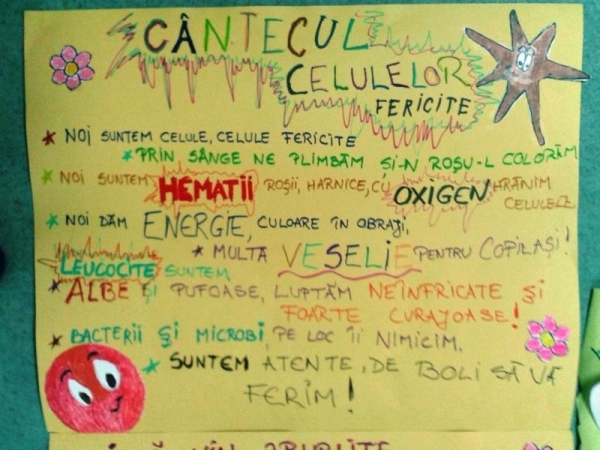 CÂNTECUL
CELULELOR
FERICITE
NOI SUNTEM CELULE, CELULE FERICITE
PRIN SÂNGE NE PLIMBĂM ȘI-N ROȘU-L COLORĂM
NOI SUNTEM HEMATII ROȘII, HARNICE, CU OXIGEN HRĂNIM
CELULELE
NOI DĂM ENERGIE, CULOARE ÎN OBRAJI,
MULTĂ VESELIE PENTRU COPILAȘI!
LEUCOCITE SUNTEM
ALBE ȘI PUFOASE, LUPTĂM NEÎNFRICATE ȘI
FOARTE CURAJOASE!
BACTERII ȘI MICROBI, PE LOC ÎI NIMICIM,
SUNTEM ATENTE, DE BOLI SĂ VĂ
FERIM!